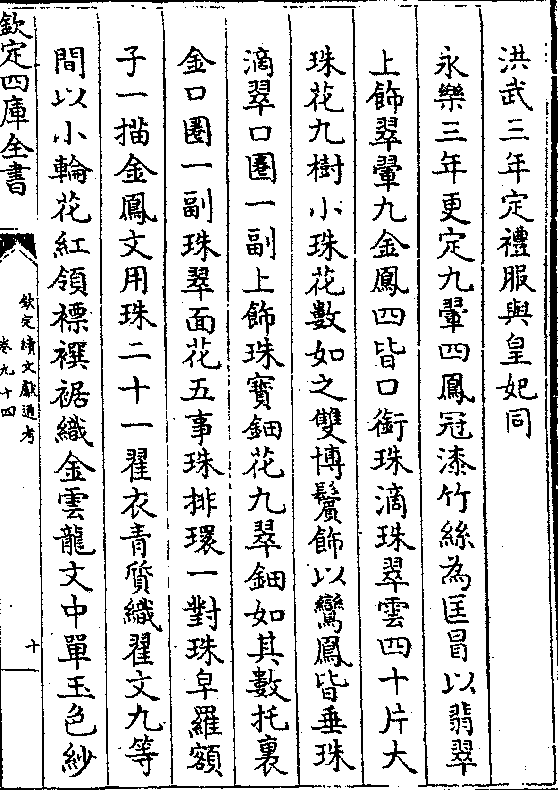 洪武三年定禮服與皇妃同
永樂三年更定九翬四鳳冠漆竹絲為匡冒以翡翠
上飾翠翬九金鳳四皆口銜珠滴珠翠雲四十片大
珠花九樹小珠花數如之雙博鬢飾以鸞鳳皆垂珠
滴翠口圈一副上飾珠寶鈿花九翠鈿如其數托裏
金口圈一副珠翠面花五事珠排環一對珠皁羅額
子一描金鳳文用珠二十一翟衣青質織翟文九等
間以小輪花紅領褾襈裾織金雲龍文中單玉色紗
欽定四庫全書
欽定續文獻通考
卷九十四
十